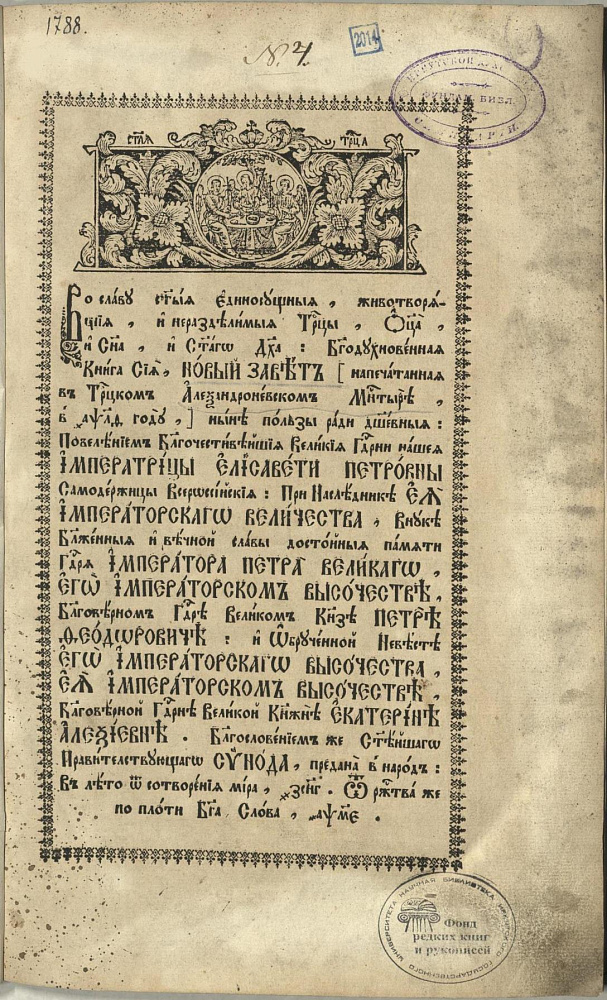 1788.
№ 4.
2014
ФУНДАМ. БИБЛ.
СЕМИНАРІИ.
ст҃ая трⷪ҇ца
Во сла́вꙋ ст҃ы́ѧ Є҆диносꙋ́щныѧ, животворѧ́-
щїѧ, и҆ нераздѣ́лимыѧ Трⷪ҇цы, Ѻ҆ц҃а̀,
и҆ Сн҃а, и҆ Ст҃а́гѡ Дх҃а: Бг҃одꙋхнове́нная
Кни́га Сїѧ̀, НО́ВЫЙ ЗАВѢ́ТЪ [напеча́танная
въ Трⷪ҇цкомъ А҆леѯандроне́вскомъ Мн҃тырѣ̀,
в̾ ҂аѱл҃д годꙋ̀,] ны́нѣ по́льзы ради дш҃е́вныѧ:
Повелѣ́нїемъ Бл҃гочести́вѣйшїѧ Вели́кїѧ Гдⷭ҇рни на́шеѧ
І҆МПЕРАТРІ́ЦЫ Є҆ЛІСАВЕ́ТИ ПЕТРО́ВНЫ
Самоде́ржицы Всерѡссі́йскїѧ: При Наслѣ́дникѣ Є҆Ѧ̀
І҆МПЕРА́ТОРСКАГѠ ВЕЛИ́ЧЕСТВА, Внꙋ́кѣ
Бл҃же́нныѧ и҆ вѣ́чной сла́вы досто́йныѧ па́мѧти
Гдⷭ҇рѧ І҆МПЕРА́ТОРА ПЕТРА̀ ВЕЛИ́КАГѠ,
Є҆ГѠ̀ І҆МПЕРА́ТОРСКОМЪ ВЫСО́ЧЕСТВѢ,
Бл҃говѣ́рномъ Гдⷭ҇рѣ Вели́комъ Кн҃зѣ ПЕТРѢ̀
Ѳ҆ЕО́ДѠРОВИЧѢ: и҆ Ѡ҆брꙋче́нной Невѣ́стѣ
Є҆ГѠ̀ І҆МПЕРА́ТОРСКАГѠ ВЫСО́ЧЕСТВА,
Є҆Ѧ̀ І҆МПЕРА́ТОРСКОМЪ ВЫСО́ЧЕСТВѢ,
Бл҃говѣ́рной Гдⷭ҇рнѣ Вели́кой Кн҃жнѣ̀ Є҆КАТЕРІ́НѢ
А҆ЛЕѮІ́ЕВНѢ. Бл҃гослове́нїемъ же Ст҃ѣ́йшагѡ
Прави́тельствꙋющагѡ СѴНО́ДА, пре́дана в̾ наро́дъ:
Въ лѣ́то ѿ сотворе́нїѧ мі́ра, ҂зсн҃г. Ѿ ржⷭ҇тва́ же
по пло́ти Бг҃а Сло́ва, ҂аѱм҃е.
НАУЧНАЯ БИБЛИОТЕКА ИРКУТСКОГО ГОСУДАРСТВЕННОГО УНИВЕРСИТЕТА
Фонд
редких книг
и рукописей